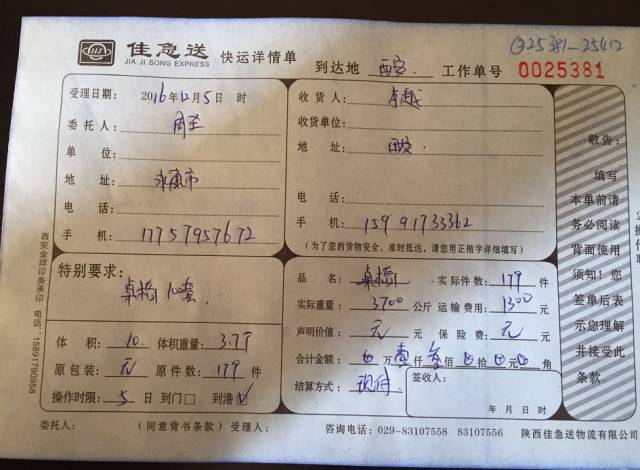 佳急送 快运详情单
JIA JI SONG EXPRESS
①25381-25412
到达地 西安 工作单号 0025381
受理日期: 2016年12月5日 时
委托人:
单位:
地址: 永康市
电话:
手机: 17757957672
收货人: 卓越
收货单位:
地址: 西安
电话:
手机: 15991733362
(为了您的货物安全,准时抵达,请您用正楷字详细填写)
敬告:
填写
本单前请
务必阅读
背面使用
须知!您
签单后表
示您理解
并接受此
条款.
特别要求:
桌椅 10套.
体积: 10. 体积重量: 3.7T
原包装: 无 原件数: 179 件
操作时限: 5 日 到门□ 到港☑
品名: 桌椅 实际件数: 179 件
实际重量: 3700 公斤 运输费用: 1300 元
声明价值: 无 元 保险费: 无 元
合计金额: 万壹仟叁佰 拾 元 角
结算方式: 现付
签收人:
年 月 日 时
委托人: (同意背书条款) 受理人: 咨询电话: 029-83107558 83107556 陕西佳急送物流有限公司
西安金辉印务承印 电话: 15891790958